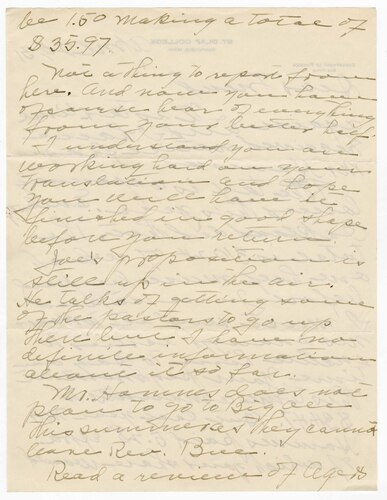 be 1.50 making a total of
$35.97.
Not a thing to report from
here. And now you have
of course hear of everything
from your better half.
I understand you are
working hard on your
translation and hope
you will have it
finished in good shape
before you return.
Joe's proposition is
still up in the air.
He talks of getting some
of the pastors to go up
there but I have no
definite information
about it so far.
Mr. Hamnes does not
plan to go to
this summer as they cannot
leave Rev. Bue.
Read a review of Age &